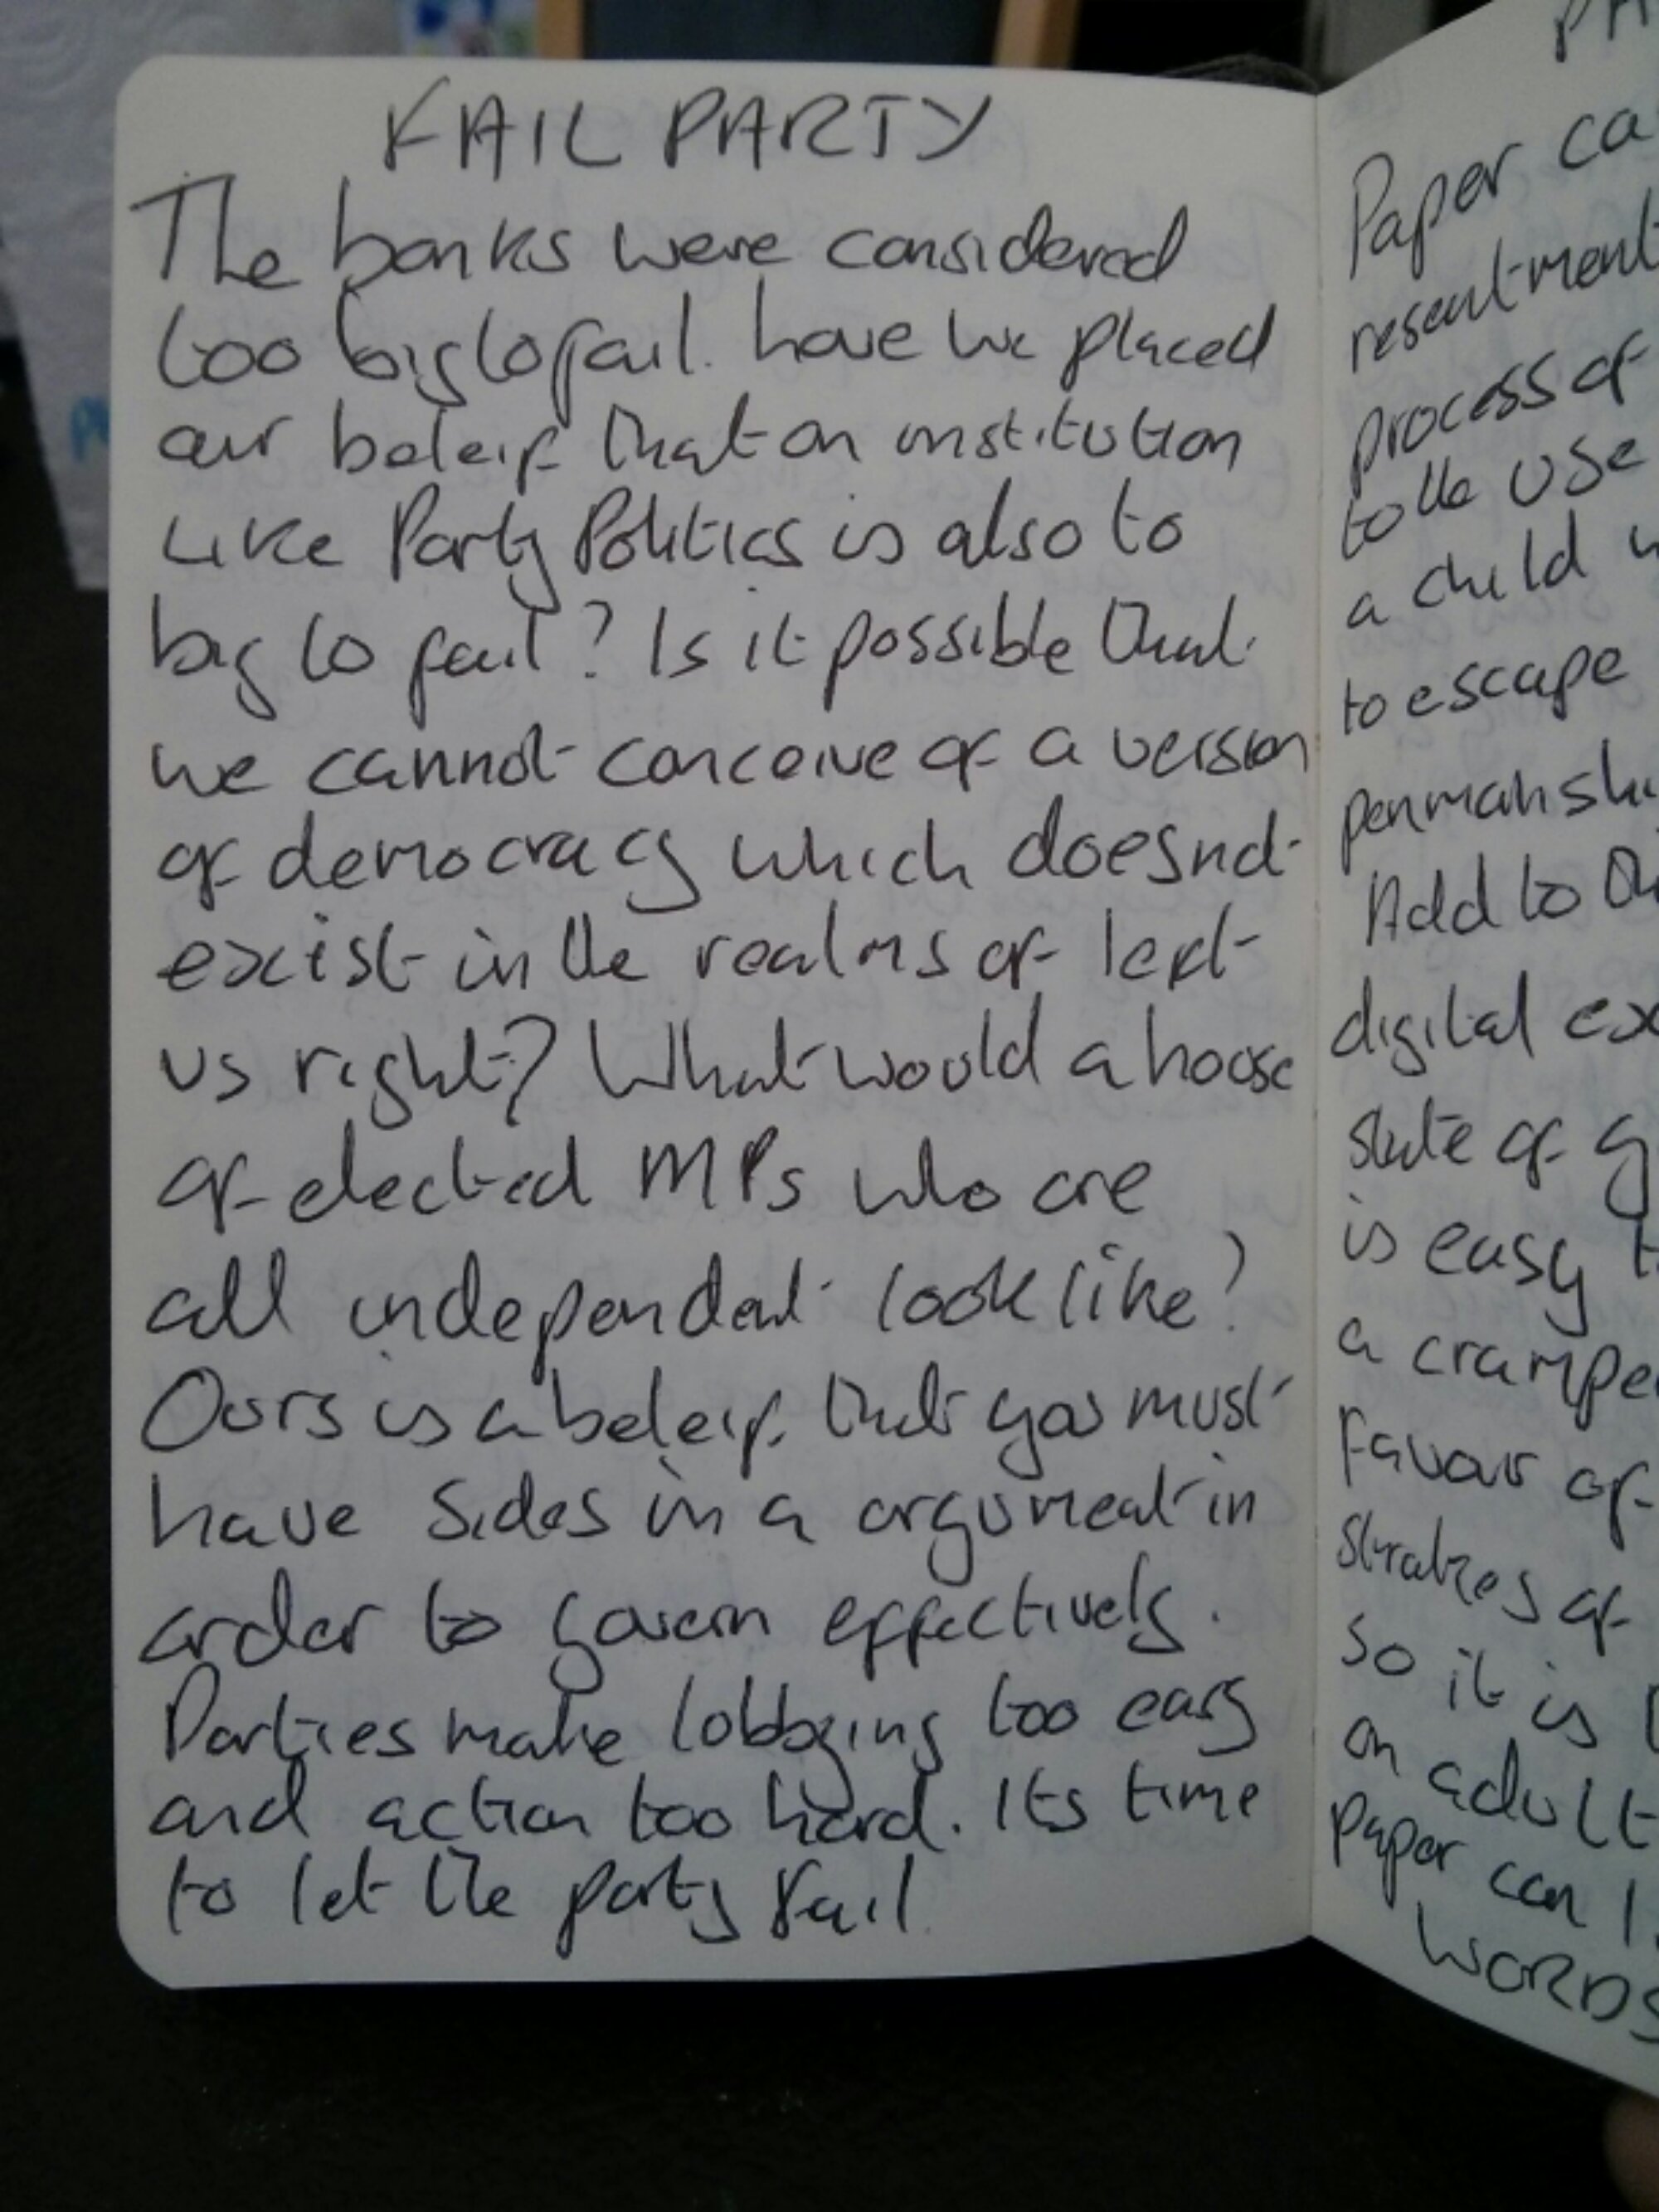 FAIL PARTY
The banks were considered
too big to fail. have we placed
our beleif that an institution
Like Party Politics is also to
big to fail? Is it possible that
we cannot conceive of a version
of democracy which doesnt
exist in the realms of left
us right? What would a hoose
of elected MPs who are
all independent look like?
Ours is a beleif that you must
have sides in a argument in
order to govern effectively.
Parties make lobbying too easy
and action too hard. Its time
to let the party Fail
Paper
resentment
process of
to the use
a child
to escape
Add to
digital
state of
is easy
a
Favour of
Strokes of
so it is
an adult
Paper can
WORDS